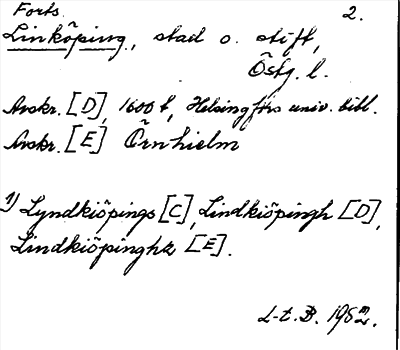 Forts. 2.
Linköping, stad o. stift,
Östg. l.
Avskr. [D], 1600 t, Helsingfors univ. bibl.
Avskr. [E] Örnhielm
1) Lyndkiöpings [C], Lindkiöpingh [D],
Lindkiöpinghz [E].
L-t. B. 195